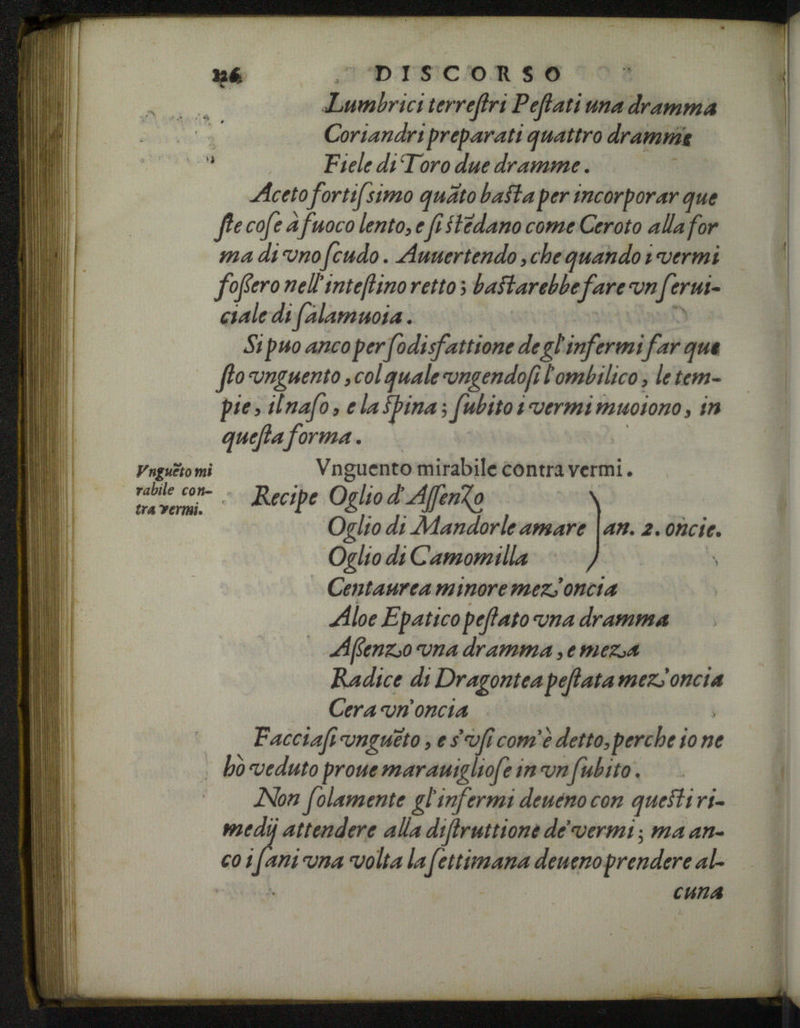 DISCORSO
Lumbrici terreſtri Peſtati una dramma
Coriandri preparati quattro dramme
Fiele di Toro due dramme.
Aceto fortiſsimo quãto baſta per incorporar que
ſte coſe à fuoco lento, e ſi ſtẽdano come Ceroto alla for
ma di vno ſcudo. Auuertendo, che quando i vermi
foſſero nell'inteſtino retto; baſtarebbe fare vn ſerui-
ciale di ſalamuoia.
Si puo anco per ſodisfattione de gl'infermi far que
ſto vnguento, col quale vngendoſi l'ombilico, le tem-
pie, il naſo, e la ſpina; ſubito i vermi muoiono, in
queſta forma.
Vnguẽto mi
rabile con-
tra vermi.
Vnguento mirabile contra vermi.
Recipe Oglio d'Aſſenzo
Oglio di Mandorle amare } an. 2. oncie.
Oglio di Camomilla
Centaurea minore mez'oncia
Aloe Epatico peſtato vna dramma
Aſſenzo vna dramma, e meza
Radice di Dragontea peſtata mez'oncia
Cera vn'oncia
Facciaſi vnguẽto, e s'vſi com'è detto, perche io ne
hò veduto proue marauiglioſe in vn ſubito.
Non ſolamente gl'infermi deueno con queſti ri-
medij attendere alla diſtruttione de'vermi; ma an-
co i ſani vna volta la ſettimana deueno prendere al-
cuna